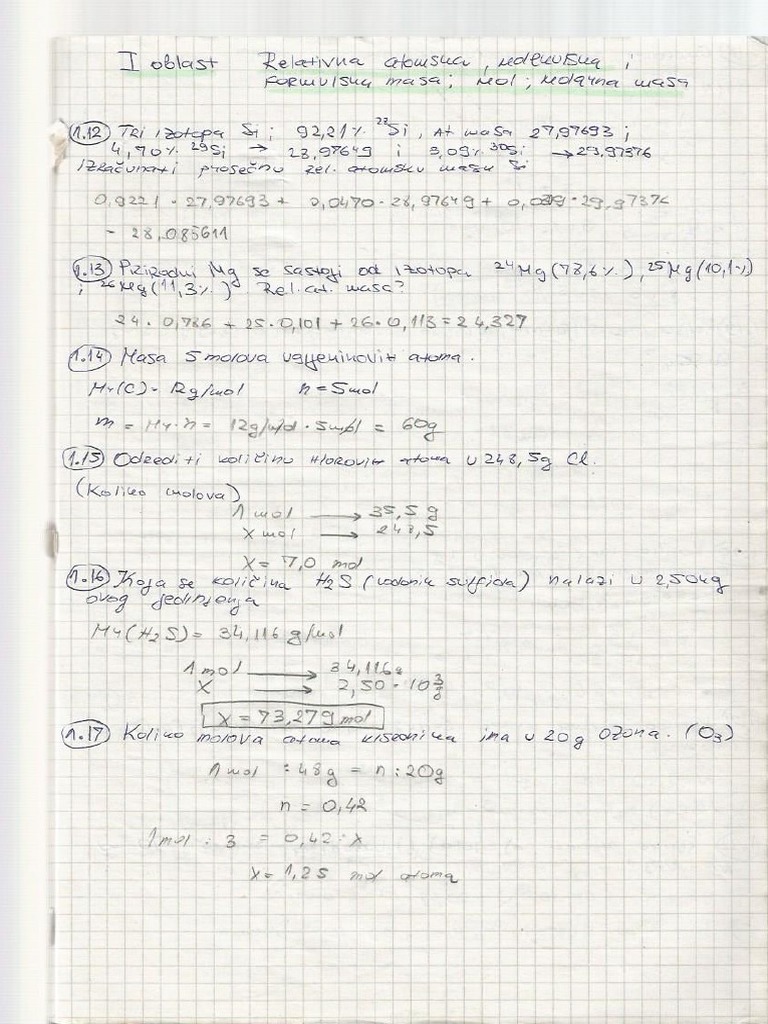 I oblast Relativna atomska, molekulska i
formulska masa; mol; molarna masa
1.12 Tri izotopa Si; 92,21% ²⁸Si, At masa 27,97693;
4,70% ²⁹Si → 28,97649 i 3,09% ³⁰Si → 29,97376
Izračunati prosečnu rel. atomsku masu Si
0,9221 · 27,97693 + 0,0470 · 28,97649 + 0,0309 · 29,97376
= 28,085611
1.13 Prirodni Mg se sastoji od izotopa ²⁴Mg (78,6%), ²⁵Mg (10,1%)
i ²⁶Mg (11,3%) Rel. at. masa?
24 · 0,786 + 25 · 0,101 + 26 · 0,113 = 24,327
1.14 Masa 5 molova ugljenikovih atoma.
Mr(C) = 12g/mol n = 5mol
m = Mr · n = 12g/mol · 5mol = 60g
1.15 Odrediti količinu hlorovih atoma u 248,5g Cl.
(Koliko molova)
1 mol → 35,5 g
X mol → 248,5
X = 7,0 mol
1.16 Koja se količina H₂S (vodonik sulfida) nalazi u 2,50kg
ovog jedinjenja
Mr(H₂S) = 34,116 g/mol
1 mol → 34,116g
X → 2,50 · 10³ g
X = 73,279 mol
1.17 Koliko molova atoma kiseonika ima u 20g ozona. (O₃)
1 mol : 48g = n : 20g
n = 0,42
1mol : 3 = 0,42 : x
x = 1,25 mol atoma